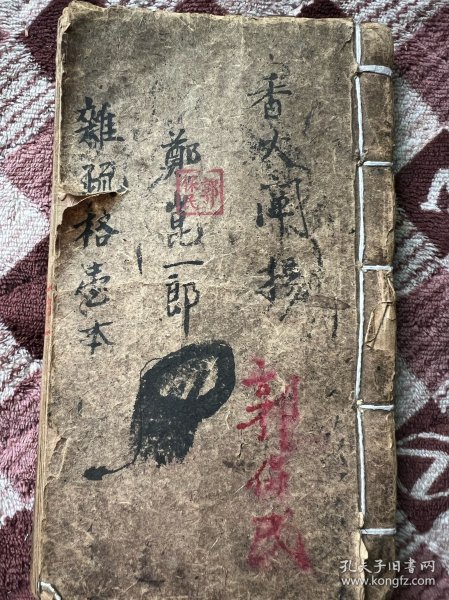 香火闡揚
郭保民
鄭崑一郎
郭保民
雜疏格壹本
孔夫子旧书网
www.kongfz.com